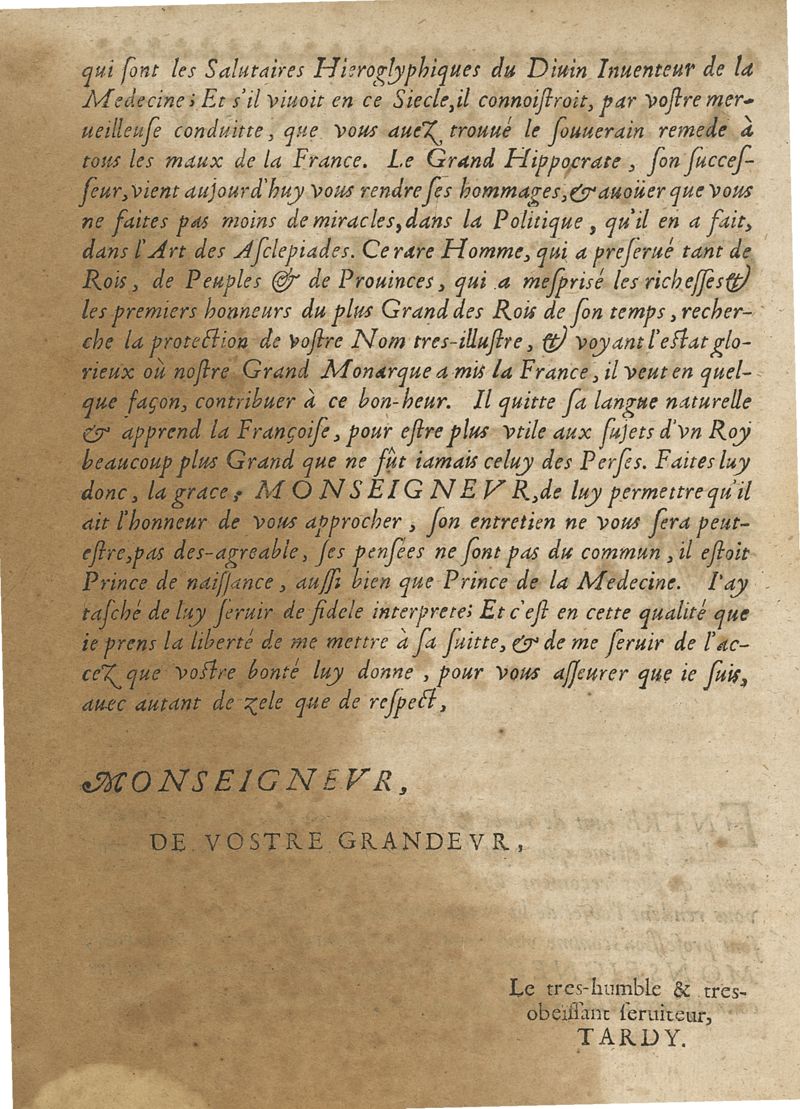 qui ſont les Salutaires Hieroglyphiques du Diuin Inuenteur de la
Medecine; Et s'il viuoit en ce Siecle, il connoiſtroit, par voſtre mer-
ueilleuſe conduitte, que vous auez trouué le ſouuerain remede à
tous les maux de la France. Le Grand Hippocrate, ſon ſucceſ-
ſeur, vient aujourd'huy vous rendre ſes hommages, & auoüer que vous
ne faites pas moins de miracles, dans la Politique, qu'il en a fait,
dans l'Art des Aſclepiades. Ce rare Homme, qui a preſerué tant de
Rois, de Peuples & de Prouinces, qui a meſpriſé les richeſſes &
les premiers honneurs du plus Grand des Rois de ſon temps, recher-
che la protection de voſtre Nom tres-illuſtre, & voyant l'eſtat glo-
rieux où noſtre Grand Monarque a mis la France, il veut en quel-
que façon, contribuer à ce bon-heur. Il quitte ſa langue naturelle
& apprend la Françoiſe, pour eſtre plus vtile aux ſujets d'vn Roy
beaucoup plus Grand que ne fût iamais celuy des Perſes. Faites luy
donc, la grace, MONSEIGNEVR, de luy permettre qu'il
ait l'honneur de vous approcher, ſon entretien ne vous ſera peut-
eſtre, pas des-agreable, ſes penſées ne ſont pas du commun, il eſtoit
Prince de naiſſance, auſſi bien que Prince de la Medecine. I'ay
taſché de luy ſeruir de fidele interprete; Et c'eſt en cette qualité que
ie prens la liberté de me mettre à ſa ſuitte, & de me ſeruir de l'ac-
cez que voſtre bonté luy donne, pour vous aſſeurer que ie ſuis,
auec autant de zele que de reſpect,
MONSEIGNEVR,
DE VOSTRE GRANDEVR,
Le tres-humble & tres-
obeiſſant ſeruiteur,
TARDY.